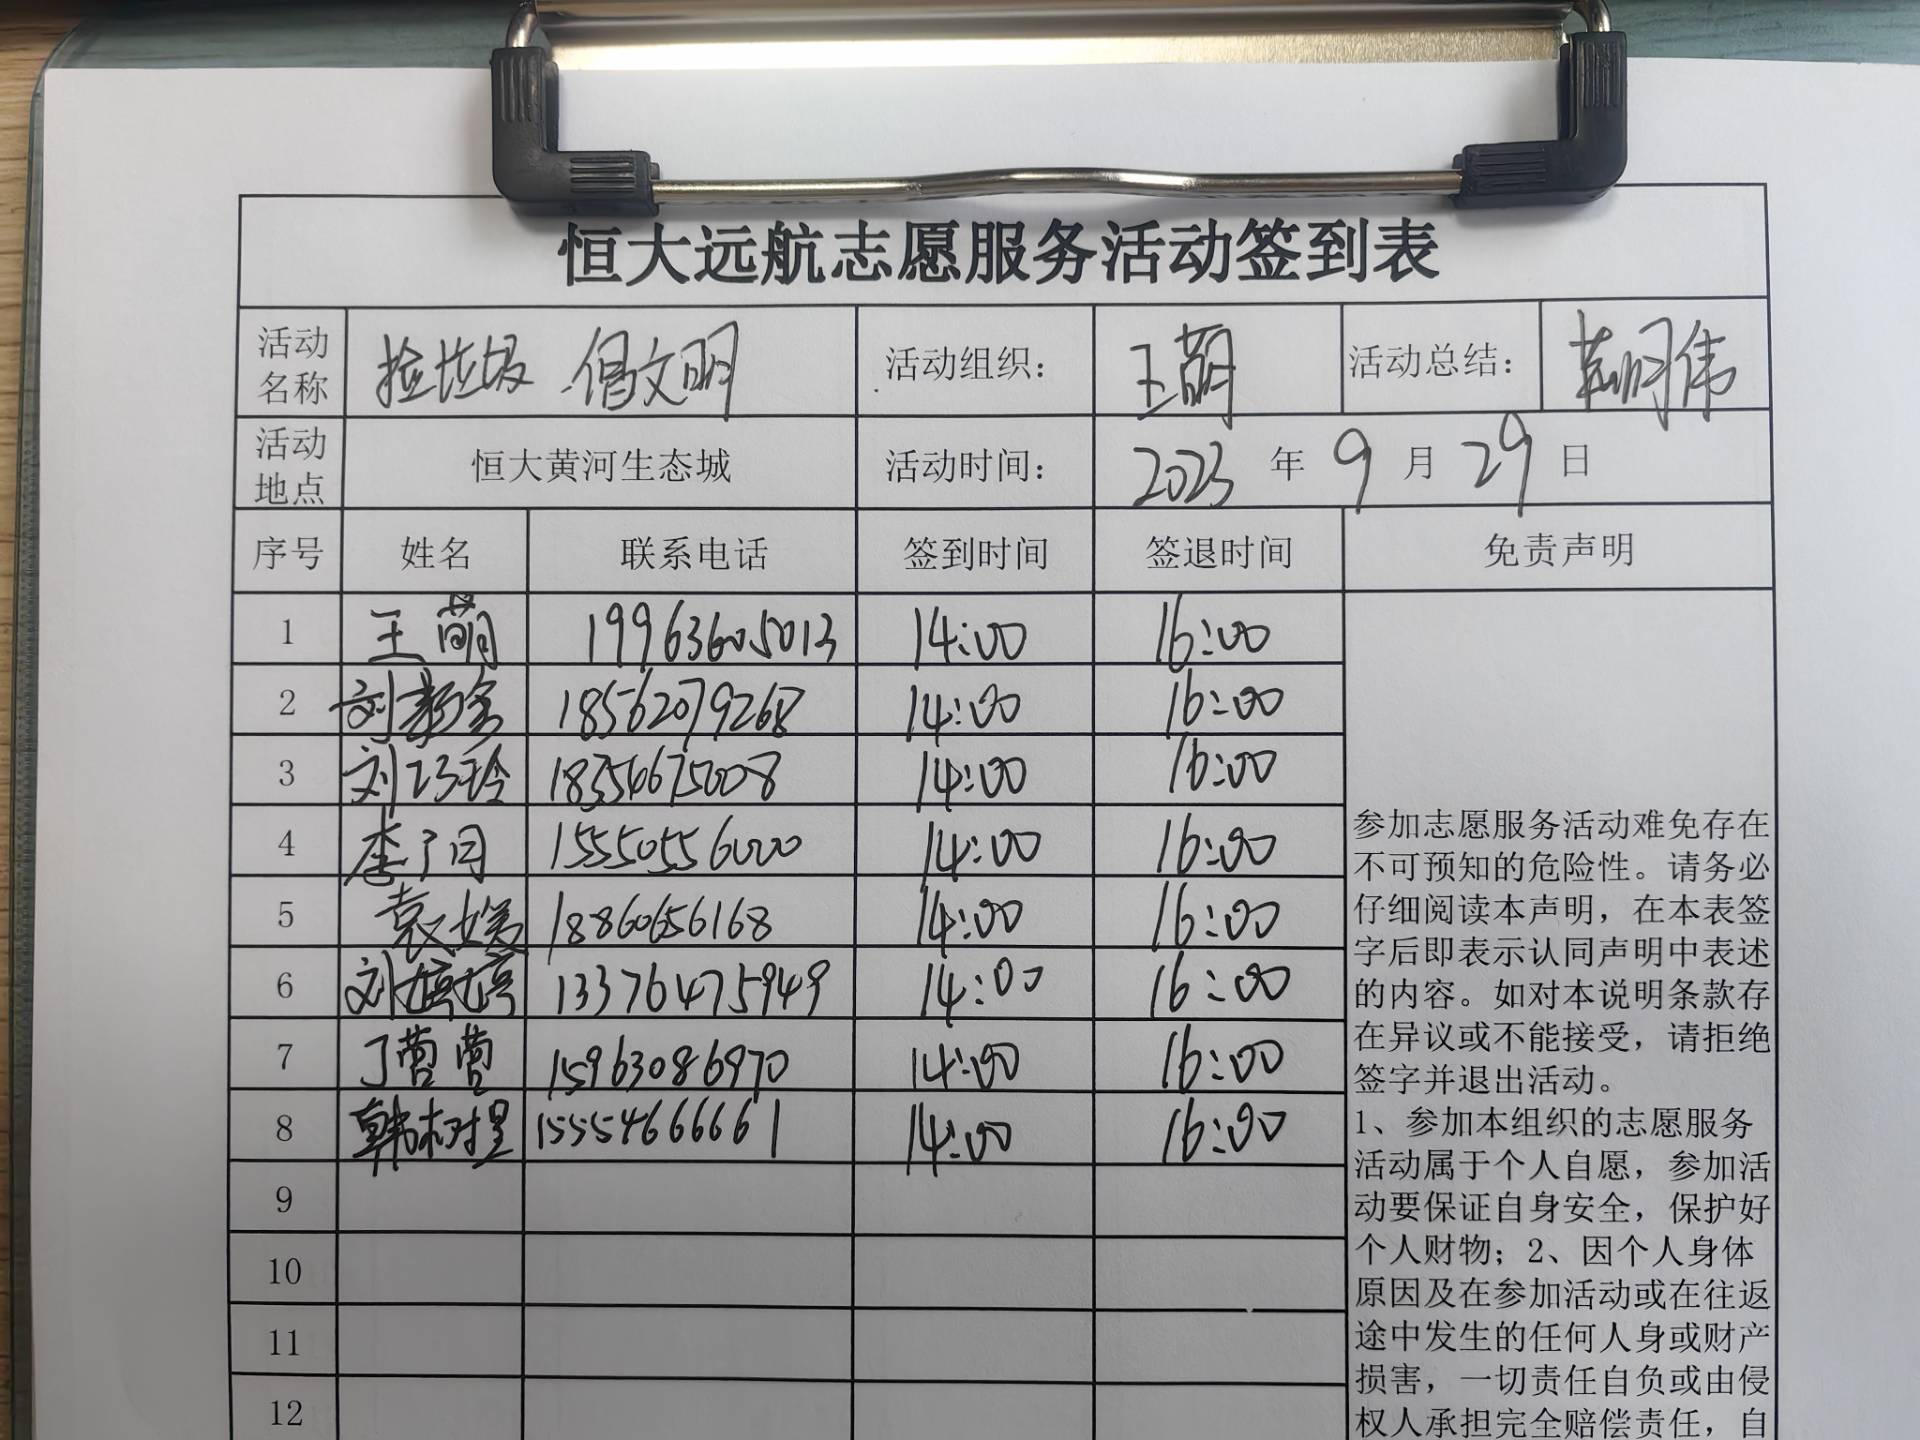 恒大远航志愿服务活动签到表
活动名称 捡垃圾 倡文明 活动组织： 王萌 活动总结：
活动地点 恒大黄河生态城 活动时间： 2023 年 9 月 29 日
序号 姓名 联系电话 签到时间 签退时间 免责声明
1 王萌 19963605013 14:00 16:00
2 18562079268 14:00 16:00
3 刘巧玲 18354675008 14:00 16:00
4 15550556000 14:00 16:00
5 18860656168 14:00 16:00
6 刘婷婷 13376475949 14:00 16:00
7 15963086970 14:00 16:00
8 15554666661 14:00 16:00
9
10
11
12
参加志愿服务活动难免存在
不可预知的危险性。请务必
仔细阅读本声明，在本表签
字后即表示认同声明中表述
的内容。如对本说明条款存
在异议或不能接受，请拒绝
签字并退出活动。
1、参加本组织的志愿服务
活动属于个人自愿，参加活
动要保证自身安全，保护好
个人财物；2、因个人身体
原因及在参加活动或在往返
途中发生的任何人身或财产
损害，一切责任自负或由侵
权人承担完全赔偿责任，自